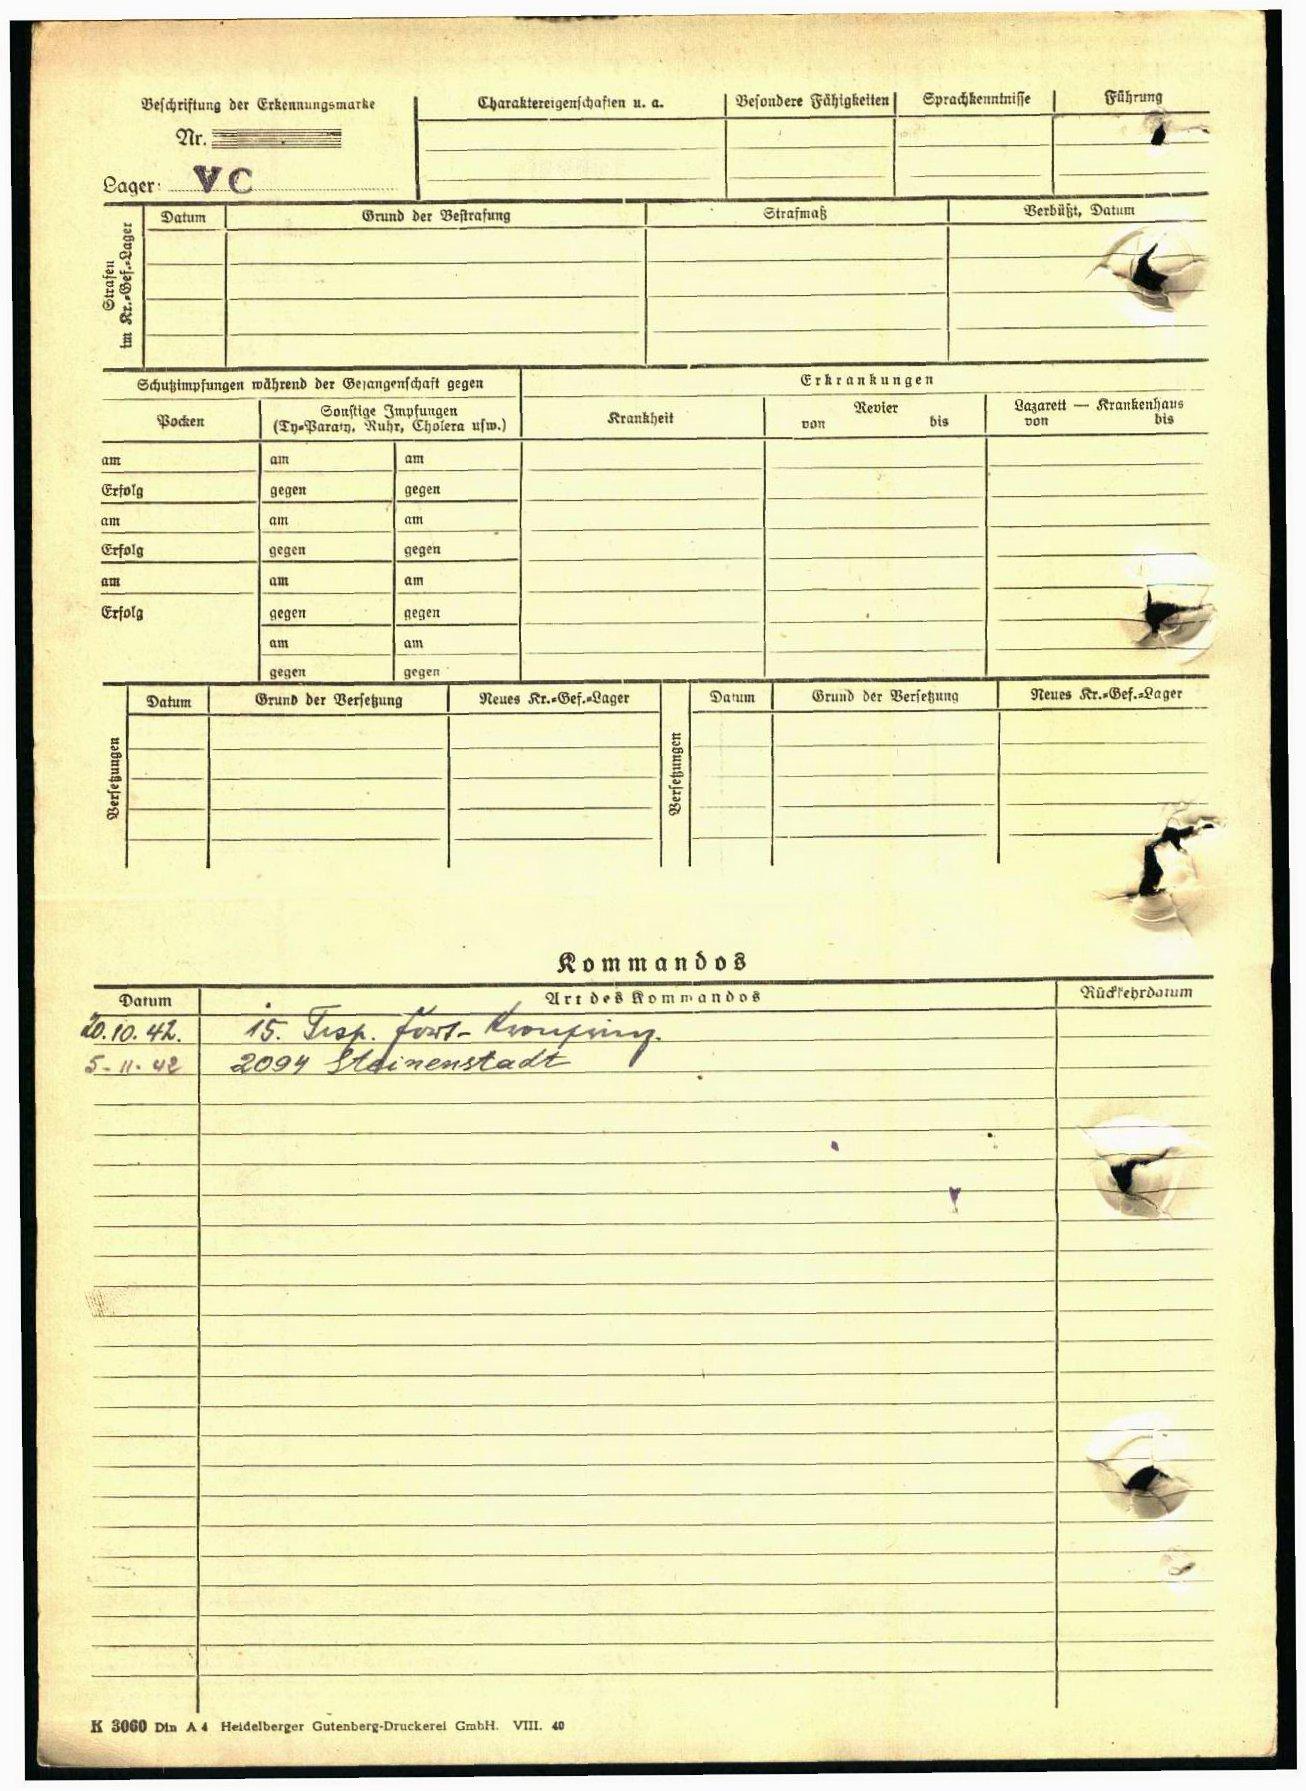 Beschriftung der Erkennungsmarke
Nr.
Lager: VC
Charaktereigenschaften u. a. Besondere Fähigkeiten Sprachkenntnisse Führung
Strafen im Kr.=Gef.=Lager
Datum Grund der Bestrafung Strafmaß Verbüßt, Datum
Schutzimpfungen während der Gefangenschaft gegen
Pocken
Sonstige Impfungen
(Ty=Paraty, Ruhr, Cholera usw.)
Erkrankungen
Krankheit
Revier
von bis
Lazarett — Krankenhaus
von bis
am am am
Erfolg gegen gegen
am am am
Erfolg gegen gegen
am am am
Erfolg gegen gegen
am am
gegen gegen
Versetzungen
Datum Grund der Versetzung Neues Kr.=Gef.=Lager
Versetzungen
Datum Grund der Versetzung Neues Kr.=Gef.=Lager
Kommandos
Datum Art des Kommandos Rückkehrdatum
20.10.42. 15. Trsp. Fort-Kronprinz.
5-11-42 2094 Steinenstadt
K 3060 Din A 4 Heidelberger Gutenberg-Druckerei GmbH. VIII. 40